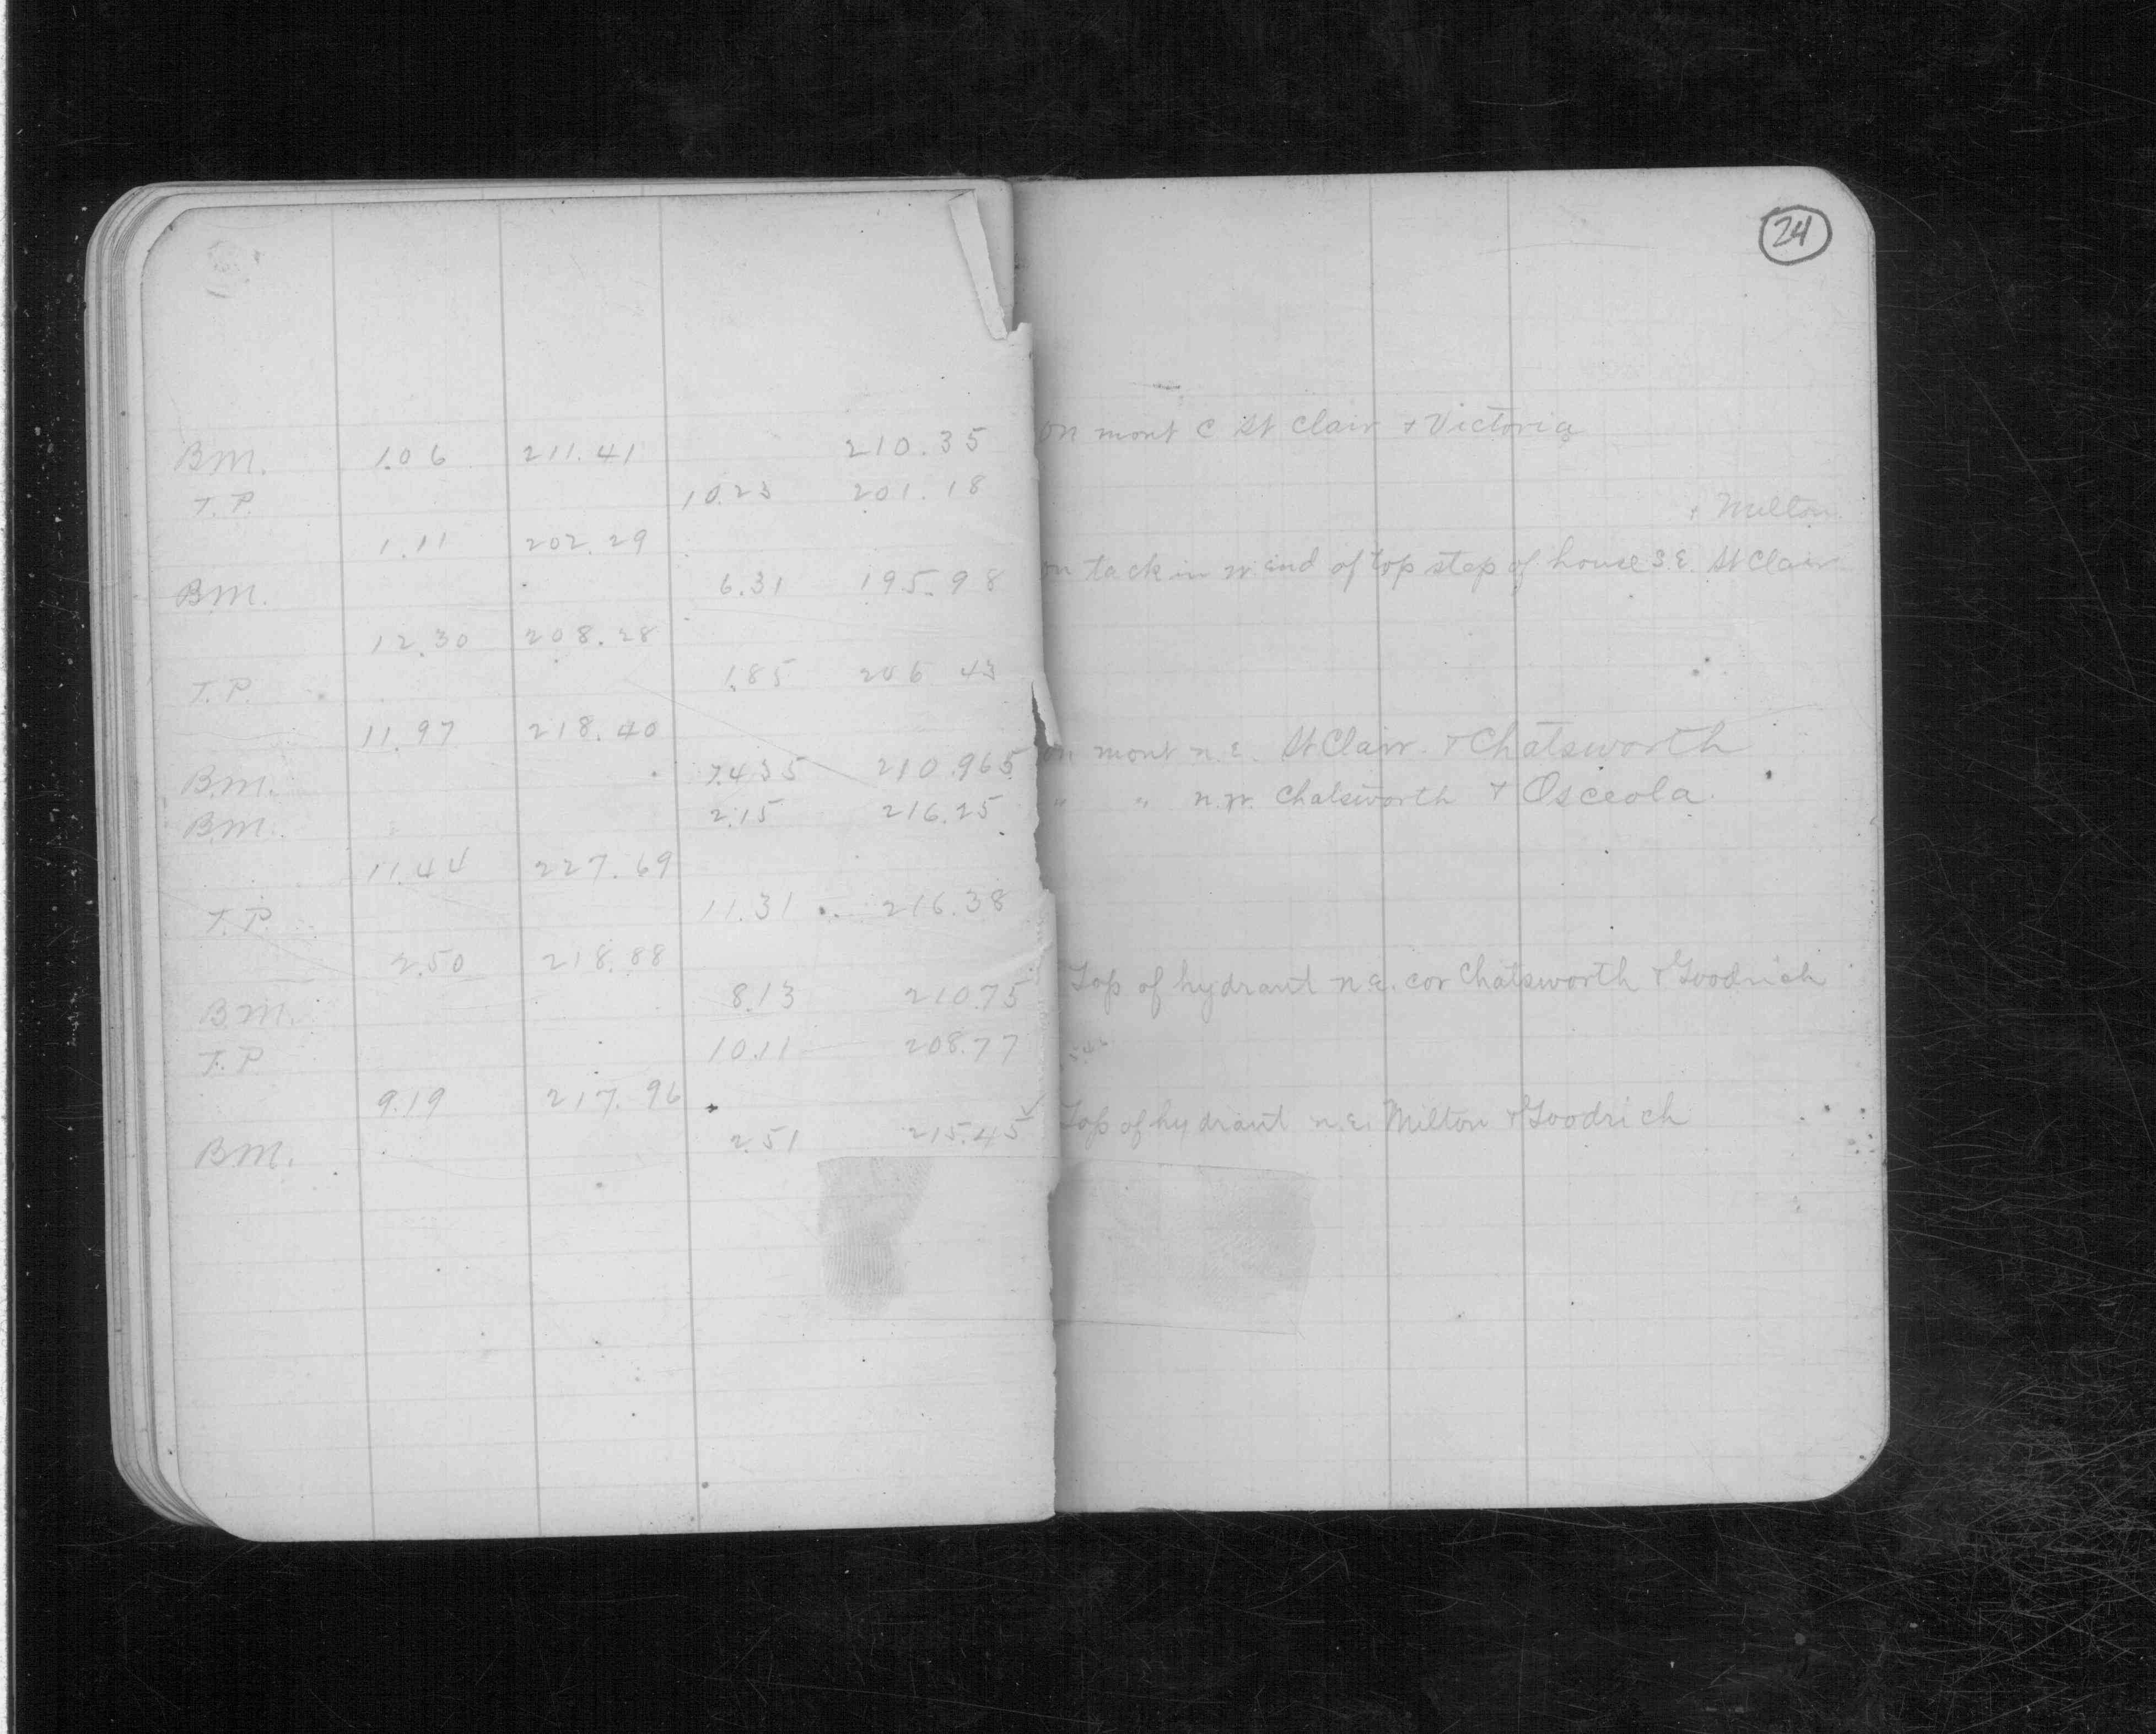 24
B.M. 1.06 211.41 210.35 on mont C St Clair + Victoria
T.P. 10.23 201.18
+ Milton
1.11 202.29
B.M. 6.31 195.98 on tack in W. end of top step of house S.E. St Clair
12.30 208.28
T.P. 1.85 206 43
11.97 218.40
B.M. 7.435 210.965 on mont n.E. St Clair + Chatsworth
B.M. 2.15 216.25 " " n.W. Chatsworth + Osceola.
11.44 227.69
T.P. 11.31 216.38
2.50 218.88
B.M. 8.13 210.75 Top of hydrant n.E. cor Chatsworth + Goodrich
T.P 10.11 208.77
9.19 217.96
B.M. 2.51 215.45 Top of hydrant n.E. Milton + Goodrich